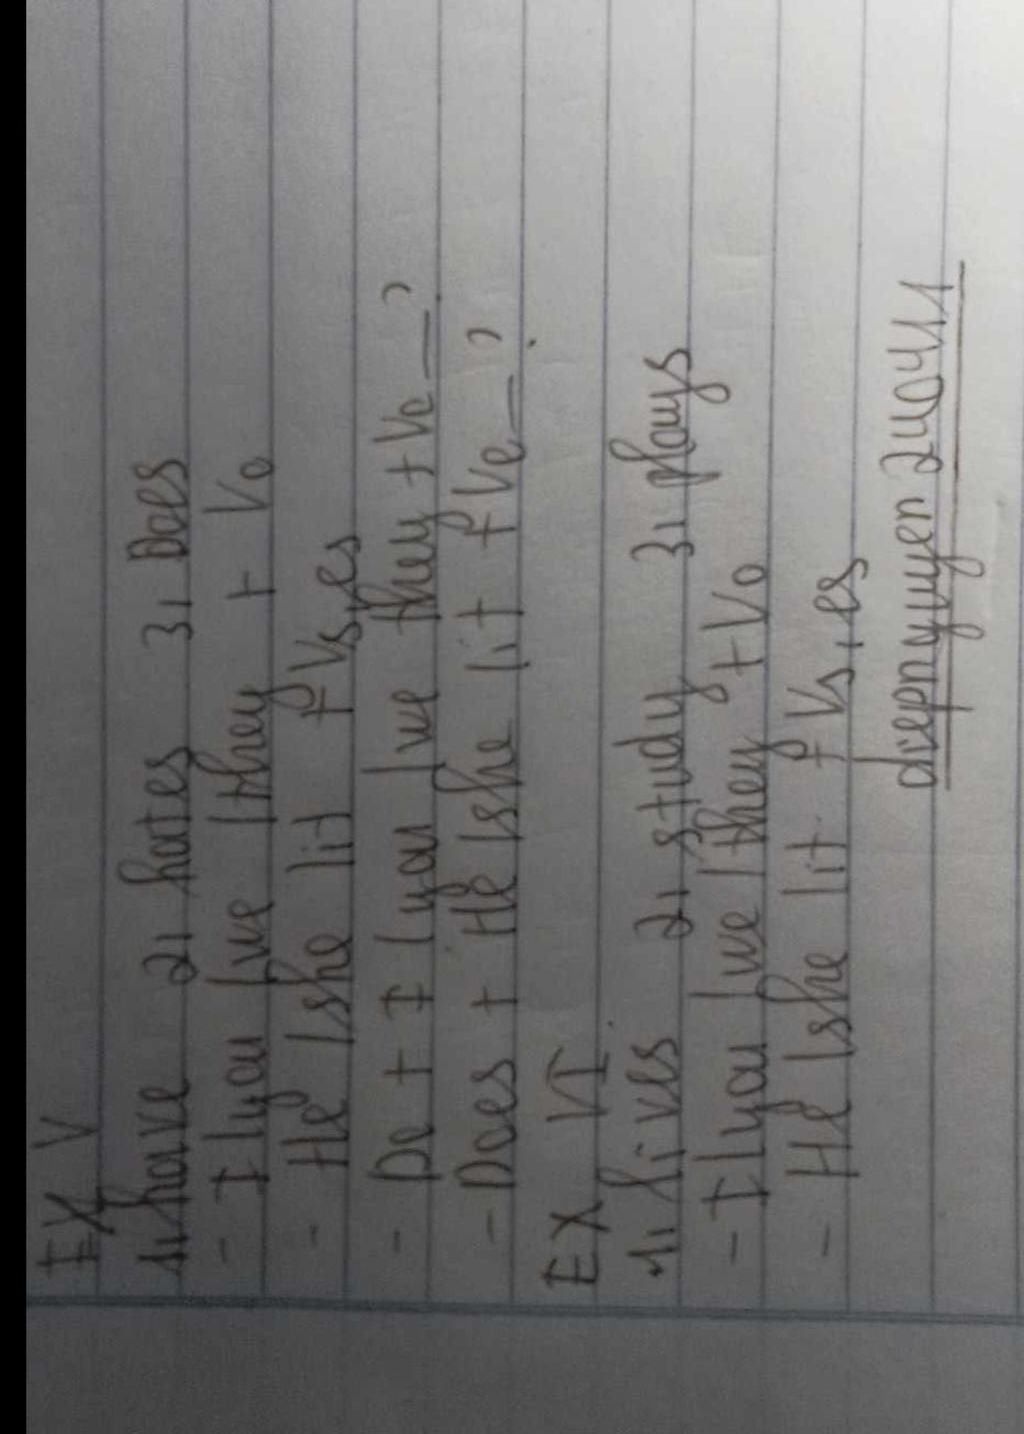 EX V
1, have 2, hates 3, Does
- I / you / we / they + Vo
- He / she / it + Vs, es
- Do + I / you / we they + Vo _ ?
- Does + He / she / it + Vo _ ?
EX VI
1, lives 2, study 3, plays
- I / you / we / they + Vo
- He / she / it + Vs, es
diepnguyen240411